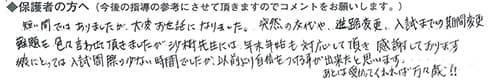 ◆保護者の方へ（今後の指導の参考にさせて頂きますのでコメントをお願いします。）
短い間ではありましたが、大変お世話になりました。突然の交代や、進路変更、入試までの期間変更
難題を色々言わせて頂きましたが 先生には、年末年始も対応して頂き感謝しております
彼にとっては入試間際の少ない時間でしたが、以前より自信をつける事が出来たと思います。
あとは受かってくれれば万々歳!!